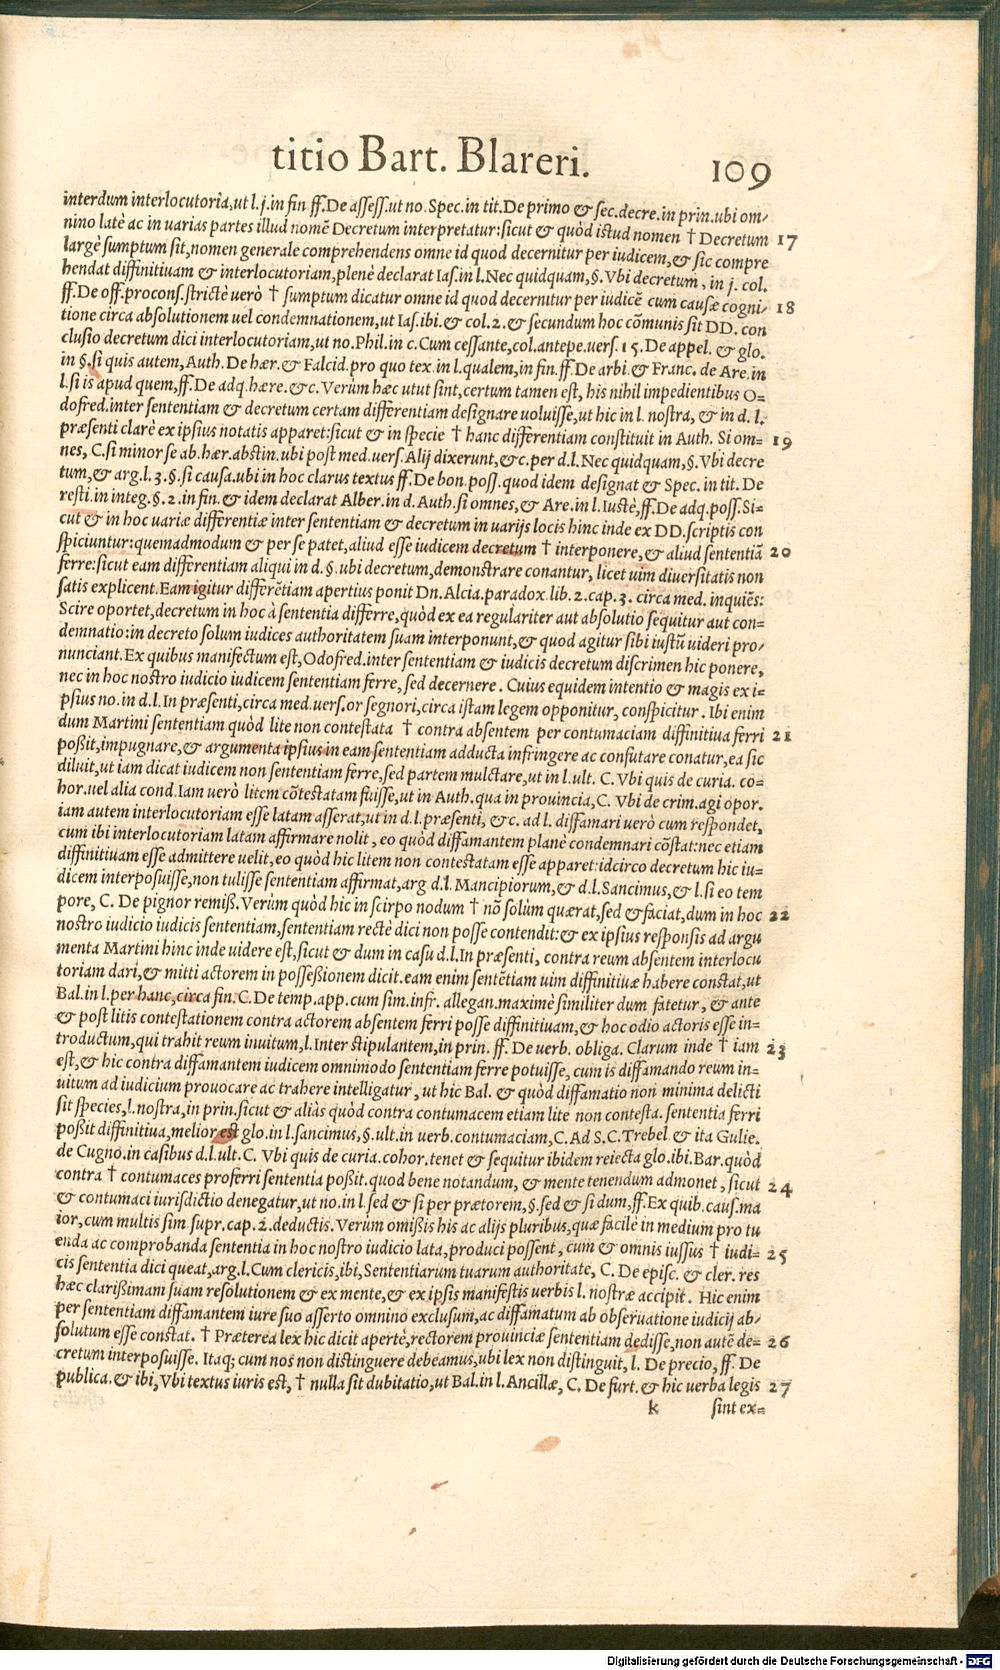 titio Bart. Blareri. 109
interdum interlocutoria,ut l.j.in fin ff.De assess.ut no.Spec.in tit.De primo & sec.decre.in prin.ubi om/
nino latè ac in uarias partes illud nomẽ Decretum interpretatur:sicut & quòd istud nomen † Decretum 17
largè sumptum sit,nomen generale comprehendens omne id quod decernitur per iudicem,& sic compre
hendat diffinitiuam & interlocutoriam,plenè declarat Ias.in l.Nec quidquam,§.Vbi decretum, in j. col.
ff.De off.procons.strictè uerò † sumptum dicatur omne id quod decernitur per iudicẽ cum causæ cogni/ 18
tione circa absolutionem uel condemnationem,ut Ias.ibi.& col.2.& secundum hoc cõmunis sit DD. con
clusio decretum dici interlocutoriam,ut no.Phil.in c.Cum cessante,col.antepe.uers.15.De appel. & glo.
in §.si quis autem, Auth. De hær.& Falcid.pro quo tex.in l.qualem,in fin.ff.De arbi.& Franc. de Are.in
l.si is apud quem,ff.De adq.hære.&c.Verùm hæc utut sint,certum tamen est, his nihil impedientibus O=
dofred.inter sententiam & decretum certam differentiam designare uoluisse,ut hic in l. nostra, & in d. l.
præsenti clarè ex ipsius notatis apparet:sicut & in specie † hanc differentiam constituit in Auth. Si om= 19
nes, C.si minor se ab.hær.abstin.ubi post med.uers.Alij dixerunt,&c.per d.l.Nec quidquam,§.Vbi decre
tum,& arg.l.3.§.si causa.ubi in hoc clarus textus ff.De bon.poss.quod idem designat & Spec. in tit. De
resti.in integ.§.2.in fin.& idem declarat Alber.in d.Auth.si omnes,& Are.in l.Iustè,ff.De adq.poss.Si=
cut & in hoc uariæ differentiæ inter sententiam & decretum in uarijs locis hinc inde ex DD.scriptis con
spiciuntur:quemadmodum & per se patet,aliud esse iudicem decretum † interponere,& aliud sententiã 20
ferre:sicut eam differentiam aliqui in d.§.ubi decretum,demonstrare conantur, licet uim diuersitatis non
satis explicent.Eam igitur differẽtiam apertius ponit Dn.Alcia.paradox.lib.2.cap.3. circa med. inquiẽs:
Scire oportet,decretum in hoc à sententia differre,quòd ex ea regulariter aut absolutio sequitur aut con=
demnatio:in decreto solum iudices authoritatem suam interponunt,& quod agitur sibi iustũ uideri pro/
nunciant.Ex quibus manifectum est,Odofred.inter sententiam & iudicis decretum discrimen hic ponere,
nec in hoc nostro iudicio iudicem sententiam ferre, sed decernere. Cuius equidem intentio & magis ex i=
psius no.in d.l.In præsenti,circa med.uers.or segnori,circa istam legem opponitur, conspicitur. Ibi enim
dum Martini sententiam quòd lite non contestata † contra absentem per contumaciam diffinitiua ferri 21
poßit,impugnare,& argumenta ipsius in eam sententiam adducta infringere ac confutare conatur,ea sic
diluit,ut iam dicat iudicem non sententiam ferre,sed partem mulctare,ut in l.ult. C.Vbi quis de curia. co=
hor.uel alia cond.Iam uerò litem cõtestatam fuisse,ut in Auth.qua in prouincia,C.Vbi de crim.agi opor.
iam autem interlocutoriam esse latam asserat,ut in d.l.præsenti, &c.ad l. diffamari uerò cum respondet,
cum ibi interlocutoriam latam affirmare nolit, eo quòd diffamantem planè condemnari cõstat:nec etiam
diffinitiuam esse admittere uelit,eo quòd hic litem non contestatam esse apparet:idcirco decretum hic iu=
dicem interposuisse,non tulisse sententiam affirmat,arg d.l.Mancipiorum,& d.l.Sancimus,& l.si eo tem
pore, C. De pignor remiß.Verùm quòd hic in scirpo nodum † nõ solùm quærat,sed & faciat,dum in hoc 22
nostro iudicio iudicis sententiam,sententiam rectè dici non posse contendit:& ex ipsius responsis ad argu
menta Martini hinc inde uidere est,sicut & dum in casu d.l.In præsenti, contra reum absentem interlocu
toriam dari,& mitti actorem in possessionem dicit.eam enim sentẽtiam uim diffinitiuæ habere constat,ut
Bal.in l.per hanc,circa fin.C.De temp.app.cum sim.infr. allegan.maximè similiter dum fatetur, & ante
& post litis contestationem contra actorem absentem ferri posse diffinitiuam,& hoc odio actoris esse in=
troductum,qui trahit reum inuitum,l.Inter stipulantem,in prin. ff. De uerb. obliga. Clarum inde † iam 23
est,& hic contra diffamantem iudicem omnimodo sententiam ferre potuisse, cum is diffamando reum in=
uitum ad iudicium prouocare ac trahere intelligatur, ut hic Bal. & quòd diffamatio non minima delicti
sit species,l.nostra,in prin.sicut & aliàs quòd contra contumacem etiam lite non contesta. sententia ferri
poßit diffinitiua,melior est glo.in l.sancimus,§.ult.in uerb.contumaciam,C.Ad S.C.Trebel & ita Gulie.
de Cugno.in casibus d.l.ult.C. Vbi quis de curia.cohor.tenet & sequitur ibidem reiecta glo.ibi.Bar.quòd
contra † contumaces proferri sententia poßit.quod bene notandum, & mente tenendum admonet, sicut 24
& contumaci iurisdictio denegatur,ut no.in l.sed & si per prætorem,§.sed & si dum,ff.Ex quib.caus.ma
ior,cum multis sim.supr.cap.2.deductis.Verùm omißis his ac alijs pluribus,quæ facilè in medium pro tu
enda ac comprobanda sententia in hoc nostro iudicio lata,produci possent, cum & omnis iussus † iudi= 25
cis sententia dici queat,arg.l.Cum clericis,ibi,Sententiarum tuarum authoritate, C. De episc. & cler. res
hæc clarißimam suam resolutionem & ex mente,& ex ipsis manifestis uerbis l. nostræ accipit. Hic enim
per sententiam diffamantem iure suo asserto omnino exclusum,ac diffamatum ab obseruatione iudicij ab/
solutum esse constat. † Præterea lex hic dicit apertè,rectorem prouinciæ sententiam dedisse,non autẽ de= 26
cretum interposuisse. Itaq; cum nos non distinguere debeamus,ubi lex non distinguit, l. De precio, ff. De
publica.& ibi,Vbi textus iuris est, † nulla sit dubitatio,ut Bal.in l.Ancillæ, C. De furt. & hic uerba legis 27
k sint ex=
Digitalisierung gefördert durch die Deutsche Forschungsgemeinschaft - DFG